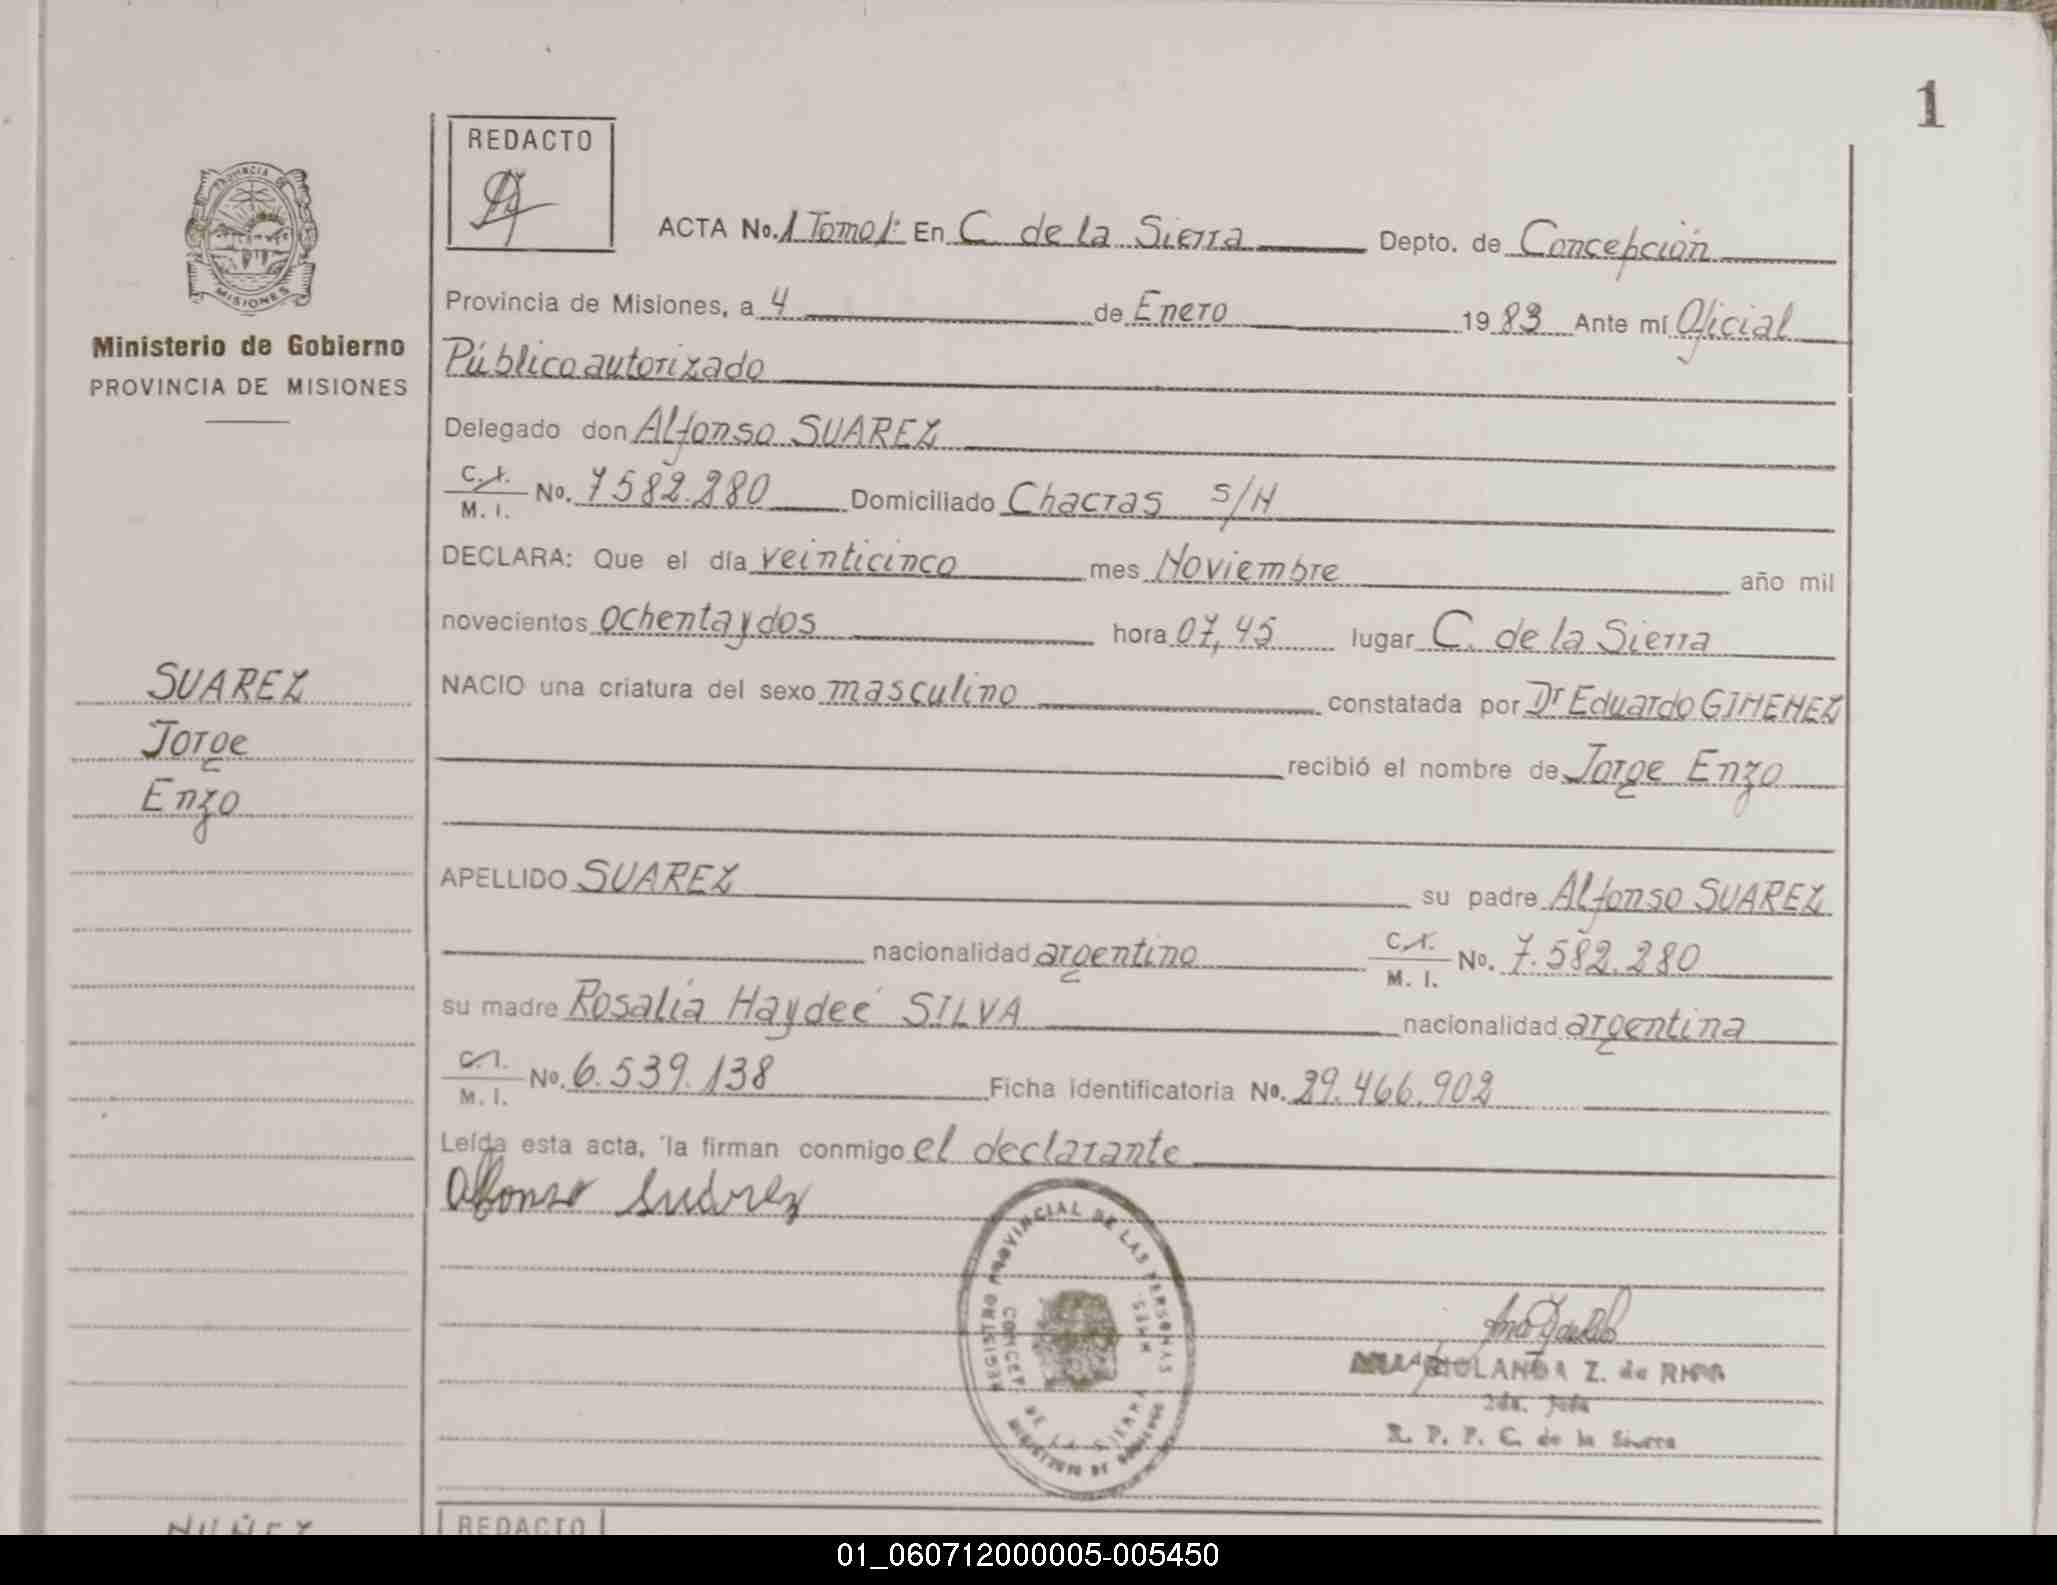 1
REDACTO
PROVINCIA DE
MISIONES
Ministerio de Gobierno
PROVINCIA DE MISIONES
ACTA No. 1 Tomo 1: En C. de la Sierra Depto. de Concepción
Provincia de Misiones, a 4 de Enero 1983 Ante mí Oficial
Público autorizado
Delegado don Alfonso SUAREZ
C. I. M. I. No. 7582.280 Domiciliado Chacras S/N
DECLARA: Que el día veinticinco mes Noviembre año mil
novecientos ochenta y dos hora 07,45 lugar C. de la Sierra
SUAREZ
Jorge
Enzo
NACIO una criatura del sexo masculino constatada por Dr Eduardo GIMENEZ
recibió el nombre de Jorge Enzo
APELLIDO SUAREZ su padre Alfonso SUAREZ
nacionalidad argentino C. I. M. I. No. 7.582.280
su madre Rosalia Haydeé SILVA nacionalidad argentina
C. I. M. I. No. 6.539.138 Ficha identificatoria No. 29.466.902
Leída esta acta, la firman conmigo el declarante
Alfonso Suárez
REGISTRO PROVINCIAL DE LAS PERSONAS
CONCEP. DE LA SIERRA
MINISTERIO DE GOBIERNO
YOLANDA Z. de
2da. Jefa
R. P. P. C. de la Sierra
NUÑEZ
REDACTO
01_060712000005-005450